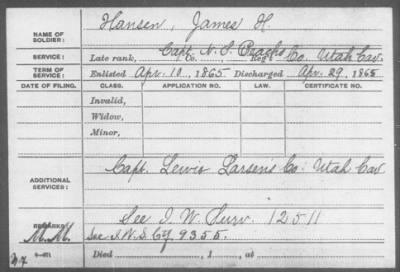 NAME OF SOLDIER: Hansen, James H.
SERVICE: Late rank, Co. Reg't Capt. N. S. Co. Utah Cav.
TERM OF SERVICE: Enlisted Apr. 10, 1865 Discharged Apr. 29, 1865
DATE OF FILING. CLASS. APPLICATION NO. LAW. CERTIFICATE NO.
Invalid,
Widow,
Minor,
ADDITIONAL SERVICES: Capt. Lewis Larsen's Co. Utah Cav
REMARKS: See I. W. Surv. 12511
M.M. See I.W.S. Cf 9355.
Died , 1 , at